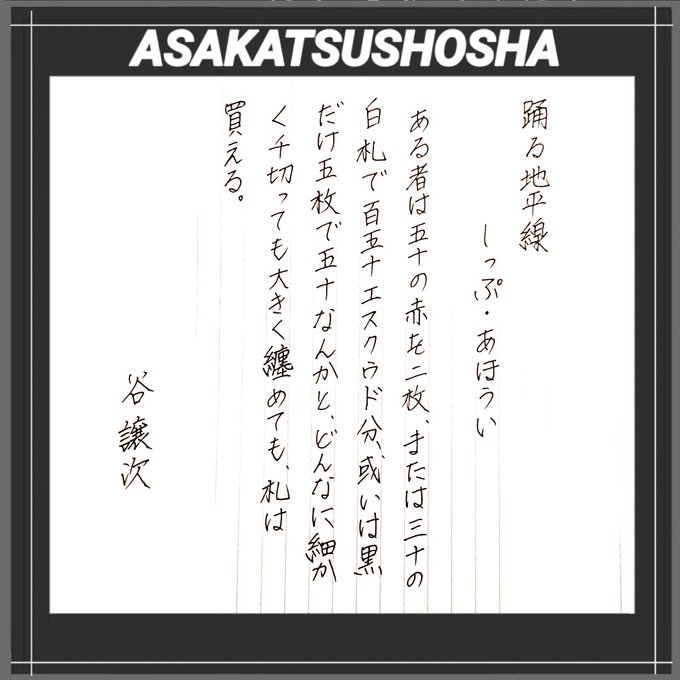 ASAKATSUSHOSHA
踊る地平線
しっぷ・あほうい
ある者は五十の赤を二枚、または三十の
白札で百五十エスクウド分、或いは黒
だけ五枚で五十なんかと、どんなに細か
く千切っても大きく纏めても、札は
買える。
谷譲次